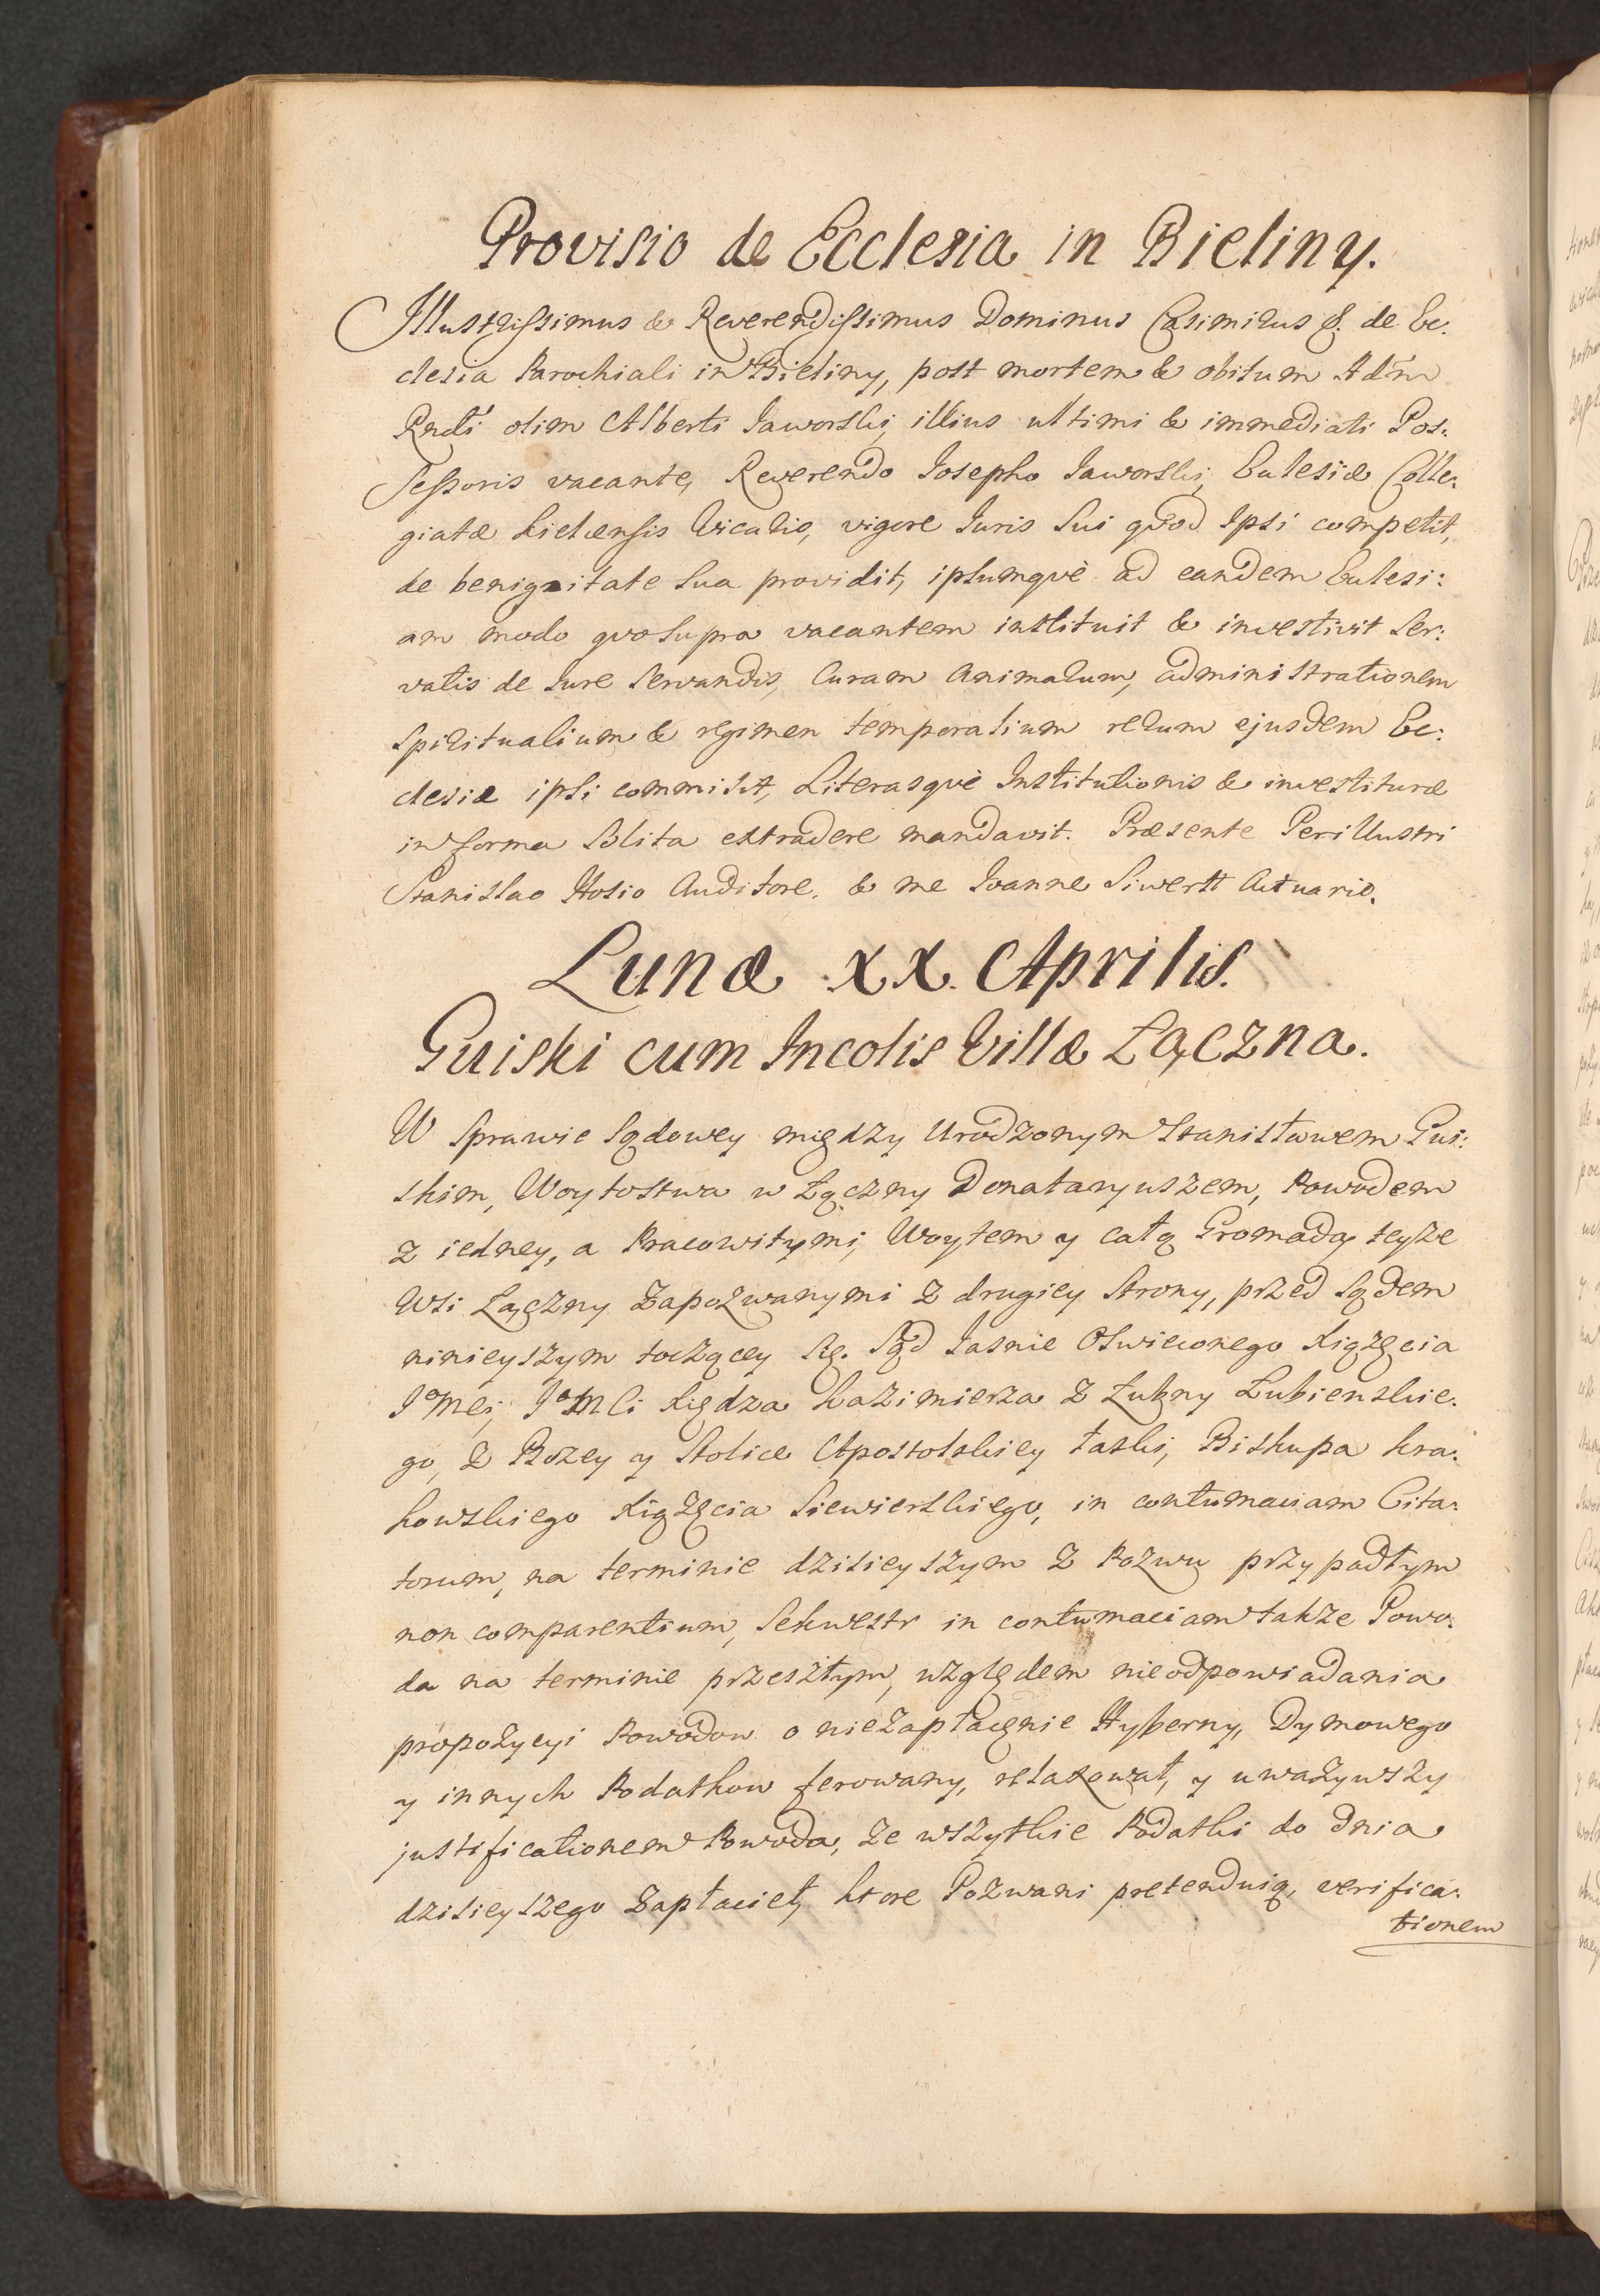 Provisio de Ecclesia in Bieliny.
Illustrissimus & Reverendissimus Dominus Casimirus &. de Ec:
clesia Parochiali in Bieliny, post mortem & obitum Adm
Rndi olim Alberti Jaworski, illius ultimi & immediati Pos:
sessoris vacante, Reverendo Josepho Jaworski, Eclesiæ Colle:
giatæ Kielcensis Vicario, vigore Juris Sui qvod Ipsi competit,
de benignitate Sua providit, ipsumqvè ad eandem Eclesi:
am modo qvo Supra vacantem instituit & investivit Ser:
vatis de Jure Servandis, Curam Animarum, administrationem
Spiritualium & regimen temporalium rerum ejusdem Ec:
clesiæ ipsi commisit, Literasqvè Institutionis & investituræ
in forma Solita extradere mandavit. Præsente Perillustri
Stanislao Hosio Auditore. & me Joanne Siwertt Actuario.
Lunæ XX. Aprilis.
Guiski cum Incolis Villæ Łączna.
W Sprawie Sądowey między Urodzonym Stanisławem Gui:
skim, Woytostwa w Łączny Donataryuszem, Powodem
z iedney, a Pracowitymi, Woytem y całą Gromadą teyże
Wsi Łączny Zapozwanymi z drugiey Strony, przed Sądem
ninieyszym toczącey się. Sąd Jasnie Oswieconego Xiążęcia
JoMci, JoMCi Xiędza Kazimierza z Łubny Łubienskie:
go, z Bozey y Stolice Apostolskiey łaski, Biskupa Kra:
kowskiego Xiążęcia Siewierskiego, in contumaciam Cita:
torum, na terminie dzisieyszym z Pozwu przypadłym
non comparentium, Sekwestr in contumaciam także Powo:
da na terminie przeszłym, względem nieodpowiadania
propozycyi Powodow o niezapłacenie Hyberny, Dymowego
y innych Podatkow ferowany, relaxował, y uważywszy
justificationem Powoda, że wszytkie Podatki do dnia
dzisieyszego Zapłacieł, ktore Pozwani pretenduią, verifica:
tionem